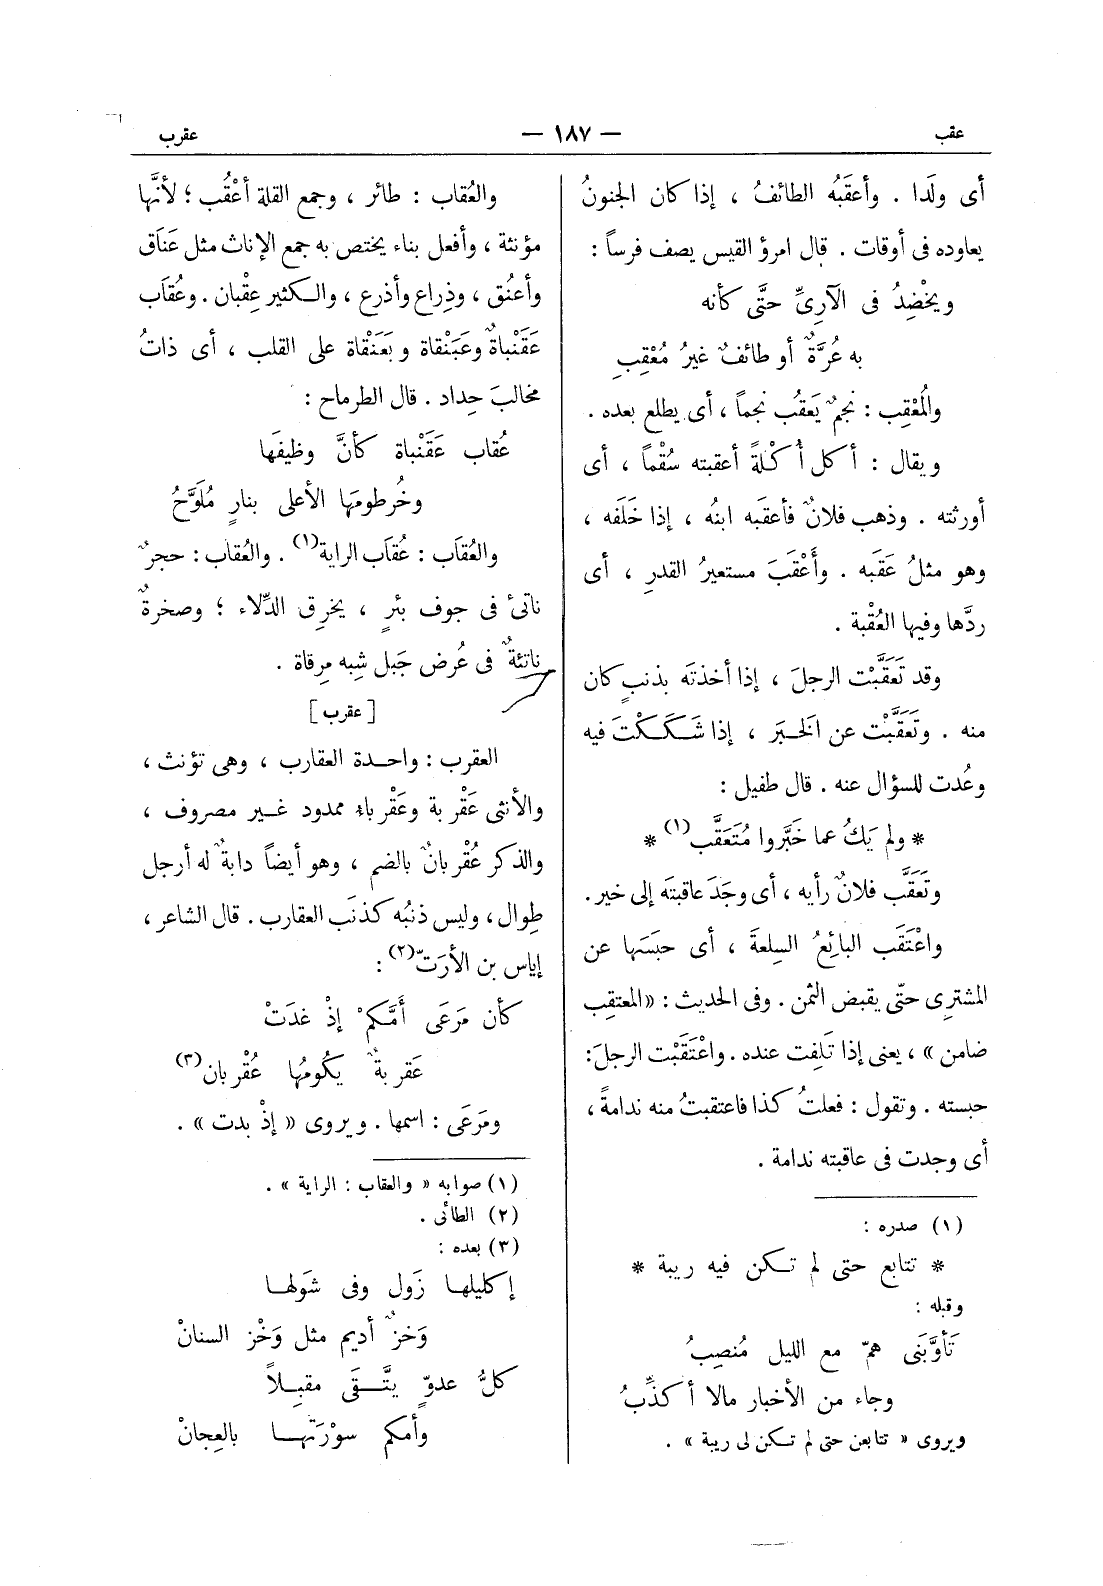 عقب
— ١٨٧ —
عقرب
أى ولَدا . وأعقَبَهُ الطائفُ ، إذا كان الجنونُ
يعاوده فى أوقات . قال امرؤ القيس يصف فرساً :
ويَخْضِدُ فى الآرِىِّ حتَّى كأنه
به عُرَّةٌ أو طائفٌ غيرُ مُعْقِبِ
والمُعْقِب : نجمٌ يَعقُب نجماً ، أى يطلع بعده .
ويقال : أكل أُكْلَةً أعقبته سُقْماً ، أى
أورثته . وذهب فلانٌ فأعقبه ابنُه ، إذا خَلَفه ،
وهو مثلُ عَقَبه . وأَعْقَبَ مستعيرُ القدرِ ، أى
ردَّها وفيها العُقْبة .
وقد تَعَقَّبْت الرجلَ ، إذا أخذتَه بذنبٍ كان
منه . وتَعَقَّبْت عن الخبَر ، إذا شَكَكْتَ فيه
وعُدت للسؤال عنه . قال طفيل :
* ولم يَكُ عما خَبَّروا مُتَعَقَّب(١) *
وتَعَقَّب فلانٌ رأيه ، أى وجَدَ عاقبتَه إلى خير .
واعْتَقَب البائِعُ السلعةَ ، أى حبَسَها عن
المشترِى حتّى يقبض الثمن . وفى الحديث : «المعتقِب
ضامن » ، يعنى إذا تَلِفت عنده . واعْتَقَبْت الرجلَ :
حبسته . وتقول : فعلتُ كذا فاعتقبتُ منه ندامةً ،
أى وجدت فى عاقبته ندامة .
(١) صدره :
* تتابع حتى لم تكن فيه ريبة *
وقبله :
تَأَوَّبَنى همّ مع الليل مُنصِبُ
وجاء من الأخبار مالا أكذِّبُ
ويروى « تتابعن حتى لم تكن لى ريبة » .
والعُقاب : طائر ، وجمع القلة أعْقُب ؛ لأنَّها
مؤنثة ، وأفعل بناء يختص به جمع الإناث مثل عَنَاق
وأعنُق ، وذِراع وأذرع ، والكثير عِقْبان . وعُقاَب
عَقَنْباةٌ وعَبَنْقاة وبَعَنْقاة على القلب ، أى ذاتُ
مخالبَ حِداد . قال الطرماح :
عُقاب عَقَنْباة كأنَّ وظيفَها
وخُرطومَها الأعلى بنارٍ مُلَوَّحُ
والعقَاب : عُقاَب الراية(١) . والعُقاب : حجرٌ
ناتئٌ فى جوف بئرٍ ، يخرِق الدِّلاء ؛ وصخرةٌ
ناتئةٌ فى عُرض جَبل شِبه مِرقاة .
[ عقرب ]
العقرب : واحدة العقارب ، وهى تؤنث ،
والأنثى عَقْربة وعَقْرباءِ ممدود غير مصروف ،
والذكر عُقْربانٌ بالضم ، وهو أيضاً دابةٌ له أرجل
طِوال ، وليس ذنبُه كذنَب العقارب . قال الشاعر ،
إياس بن الأرَتّ(٢) :
كأن مَرعَى أمَّكمْ إذْ غدَتْ
عَقربةٌ يكُومُها عُقْربان(٣)
ومَرعَى : اسمها . ويروى « إذْ بدت » .
(١) صوابه « والعقاب : الراية » .
(٢) الطائى .
(٣) بعده :
إكليلها زَول وفى شَولها
وَخزٌ أديم مثل وَخْز السنانْ
كلُّ عدوٍّ يتَّقَى مقبلاً
وأمكم سوْرَتُها بالعِجانْ